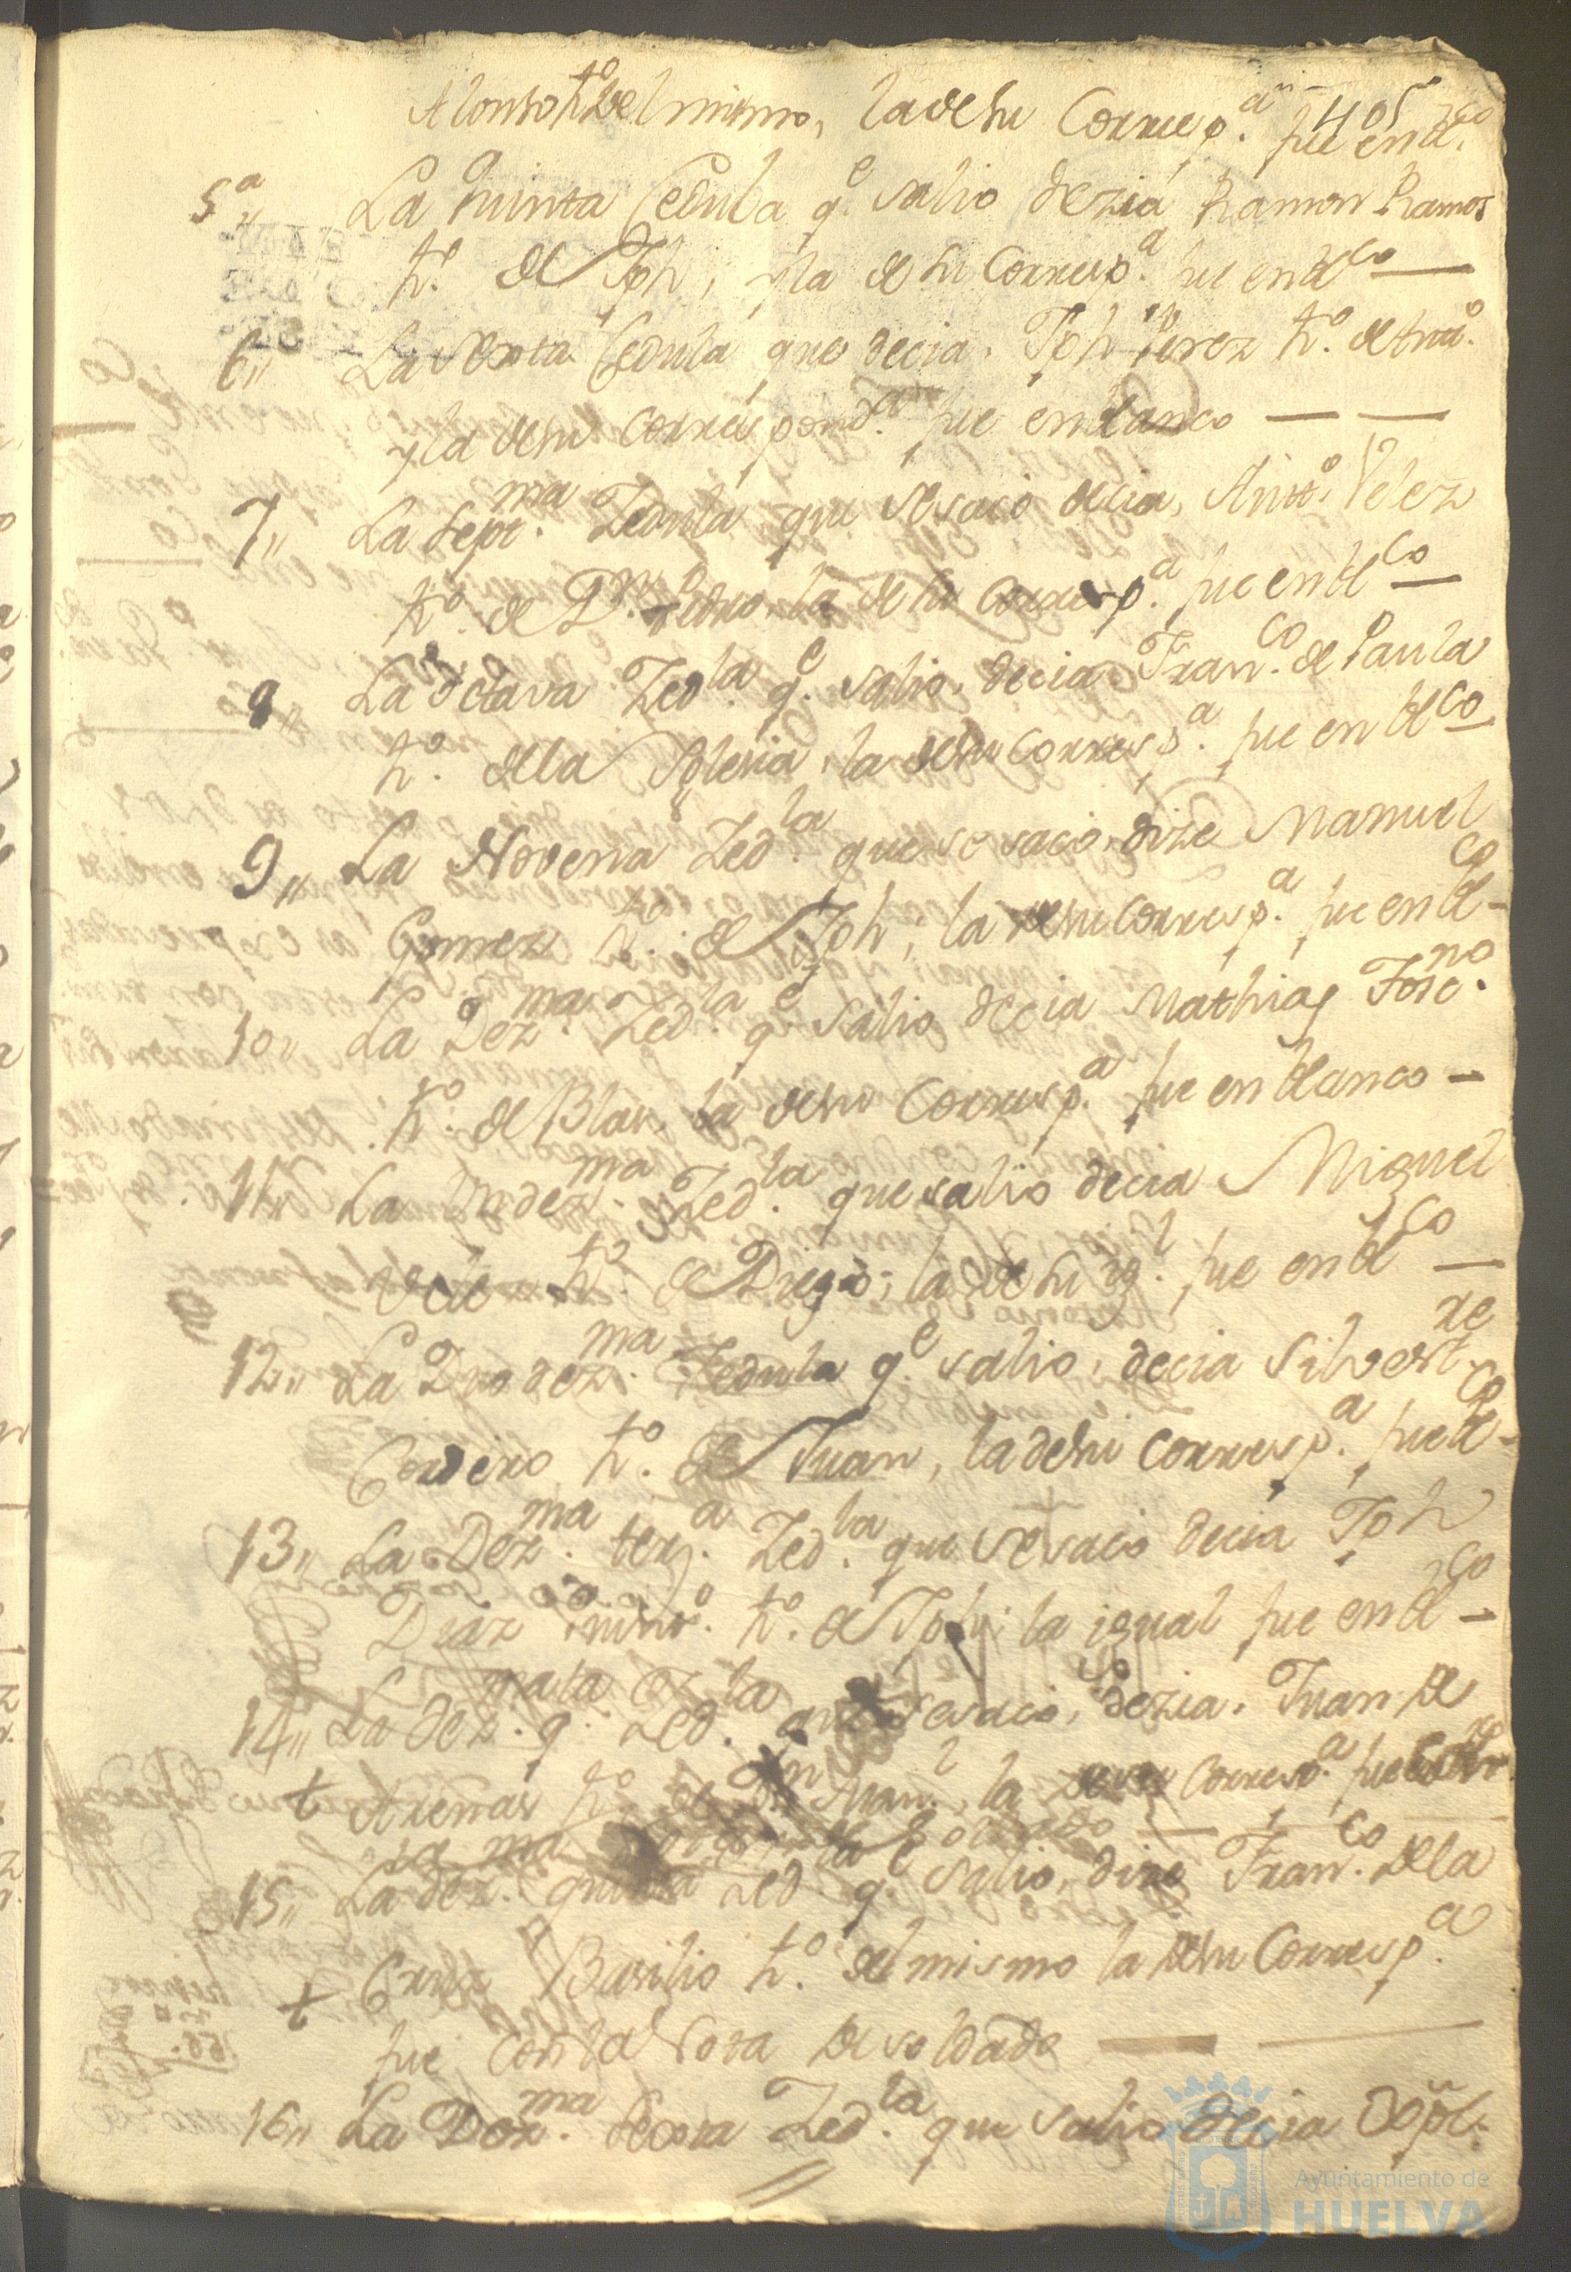 405
Alonso h.º del mismo, la de su Corresp.ª fue en bl.co
5ª,, La quinta Cedula q.e salio dezia Ramon Ramos
h.º de Jph, y la de su Corresp.ª fue en bl.co
6,, La Sexta Cedula que decia, Jph Perez h.º de
y la de su Correspond.ª fue en blanco
7,, La Sept.ma Zedula que se saco decia, Antt.º Velez
h.º de D.n Pedro la de su Corresp.ª fue en bl.co
8,, La octava Zed.la q.e salio, decia Fran.co de Paula
h.º de la Iglesia, la de su Corresp.ª fue en bl.co
9,, La Novena Zed.la que se saco, dize Manuel
Gomez h.º de Jph, la de su Corresp.ª fue en bl.co
10,, La Dez.ma Zed.la q.e salio decia Mathias
h.º de Blas, la de su Corresp.ª fue en blanco
11,, La Undez.ma Zed.la que salio decia Miguel
h.º de Diego; la de su ig.l fue en bl.co
12,, La Duodez.ma Zedula q.e salio, decia Silvest.re
Cordero h.º de Juan, la de su Corresp.ª fue bl.co
13,, La Dez.ma ter.ª Zed.la que se saco decia Jph
Diaz h.º de Jph; la igual fue en bl.co
14,, La dez.ma q.ta Zed.la que se saco, dezia, Juan de
+ Arenas h.º de la de su Corresp.ª fue
soldado
15,, La dez.ma quinta Zed.la q.e salio, dize Fran.co de la
+ Cruz Basilio h.º del mismo la de su Corresp.ª
fue con la Nota de soldado
16,, La Dez.ma sexta Zed.la que salio decia
Ayuntamiento de
HUELVA